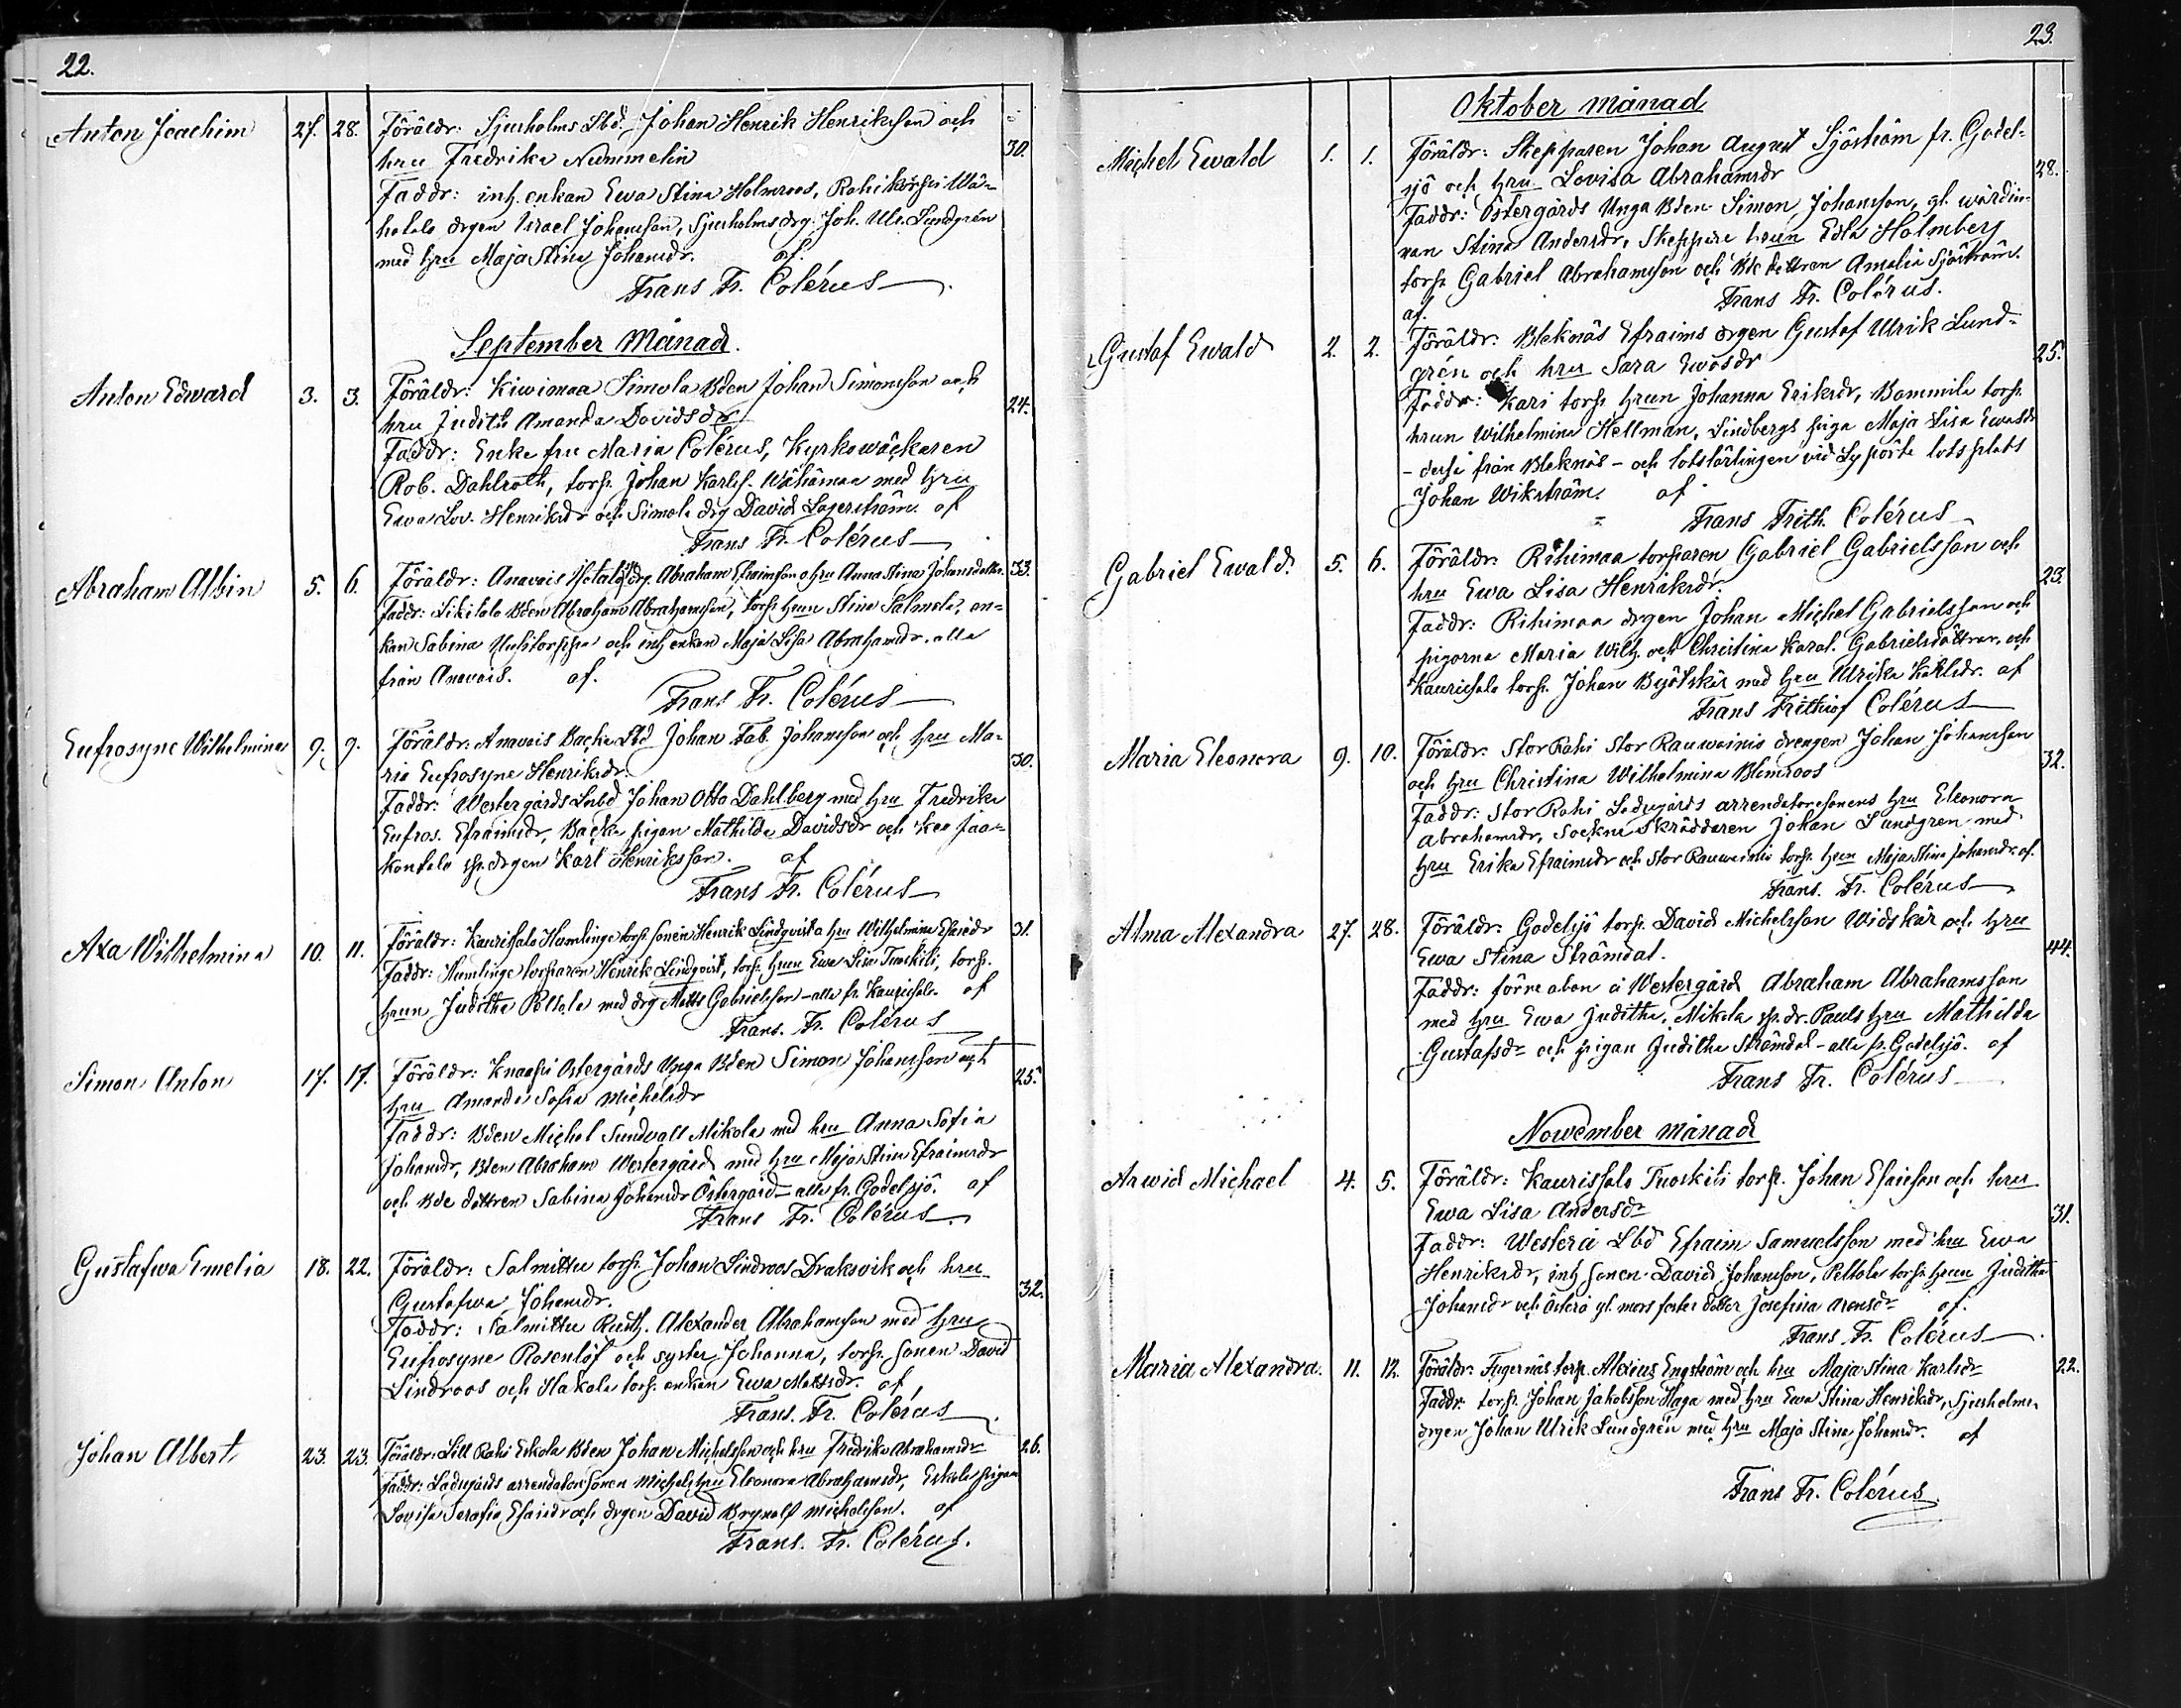 22.
Anton Joachim 27. 28. Föräldr: Sjusholms Lbd. Johan Henrik Henriksson och
hru Fredrika Nummelin 30.
Faddr: inh. enkan Ewa Stina Holmroos,
drgen Israel Johansson, Sjusholms drg. Joh. Ulr. Lundgrén
med hru Maja Stina Johansdr. af.
Frans Fr. Colérus
September Månad.
Anton Edward 3. 3. Föräldr: Kiwimaa Simola Bden Johan Simonsson och
hru Judith Amanda Davidsdr 24.
Faddr: Enke fru Maria Colérus, Kyrkowäckaren
Rob. Dahlroth, torp. Johan Karlss. Wähämaa med hru
Ewa Lov. Henriksdr och Simola drg David Lagerström. af
Frans Fr. Colérus
Abraham Albin 5. 6. Föräldr: Anavais drg. Abraham Efraimson o hru Anna Stina Johansdotter. 33.
Faddr: Bden Abraham Abrahamsson, torp. hrun Stina Salmela, en-
kan Sabina och inh enkan Maja Lisa Abrahamsdr. alla
från Anavais. af.
Frans Fr. Colérus
Eufrosyne Wilhelmina 9. 9. Föräldr: Anavais Backa Lbd Johan Fab. Johansson och hru Ma-
ria Eufrosyne Henriksdr. 30.
Faddr: Westergårds Lnbd Johan Otto Dahlberg med hru Fredrika
Eufros. Efraimsdr, Backa pigan Mathilda Davidsdr och
drgen Karl Henriksson. af
Frans Fr. Colérus
Axa Wilhelmina 10. 11. Föräldr: Kaurissalo Humlinge torp. sonen Henrik Lindqvist o hru Wilhelmina Esaiedr 31.
Faddr: Humlinge torparen Henrik Lindqvist, torp. hrun Ewa Lisa Tuoskili, torp.
hrun Juditha Peltola med drg Matts Gabrielsson - alla fr. Kaurissalo. af
Frans. Fr. Colérus
Simon Anton 17. 17. Föräldr: Knaapi Östergårds Unga Bden Simon Johansson och
hru Amanda Sofia Michelsdr 25.
Faddr: Bden Michel Sundvall Mikola med hru Anna Sofia
Johansdr, Bden Abraham Westergård med hru Maja Stina Efraimsdr
och Bde dottren Sabina Johansdr Östergård - alla fr. Godelsjö. af
Frans Fr. Colérus
Gustafwa Emelia 18. 22. Föräldr: Salmittu torp. Johan Lindroos Draksvik och hru
Gustafwa Johansdr. 32.
Faddr: Salmittu Rusth. Alexander Abrahamsson med hru
Eufrosyne Rosenlöf och syster Johanna, torp. sonen David
Lindroos och Hakala torp. enkan Ewa Mattsdr. af
Frans. Fr. Colérus
Johan Albert 23. 23. Föräldr: Lill Rahi Eskola Bden Johan Michelsson och hru Fredrika Abrahamsdr 26.
Faddr: Ladugårds arrendator sonen Michel, hru Eleonora Abrahamsdr, Eskola pigan
Lovisa Serafia Esaiedr och drgen David Brynolf Michelsson. af
Frans. Fr. Colérus.
23.
Oktober månad
Michel Ewald 1. 1. Föräldr: Skepparen Johan August Sjöström fr. Godel-
sjö och hru Lovisa Abrahamsdr 28.
Faddr: Östergårds Unga Bden Simon Johansson, gl. wärdin-
nan Stina Andersdr, Skeppare hrun Edla Holmberg
torp. Gabriel Abrahamsson och Bde dottren Amalia Sjöström.
af. Frans Fr. Colérus.
Gustaf Ewald 2. 2. Föräldr: Bleknäs Efraims drgen Gustaf Ulrik Lund-
grén och hru Sara Ewasdr 25.
Faddr: Kari torp. hrun Johanna Eriksdr, Bammila torp.
hrun Wilhelmina Hellman, Lindbergs piga Maja Lisa Ewasdr
- desse från Bleknäs - och lotslärlingen vid Lypörtö lotsplats
Johan Wikström. af
Frans Frith. Colérus
Gabriel Ewald. 5. 6. Föräldr: Rihimaa torparen Gabriel Gabrielsson och
hru Ewa Lisa Henriksdr. 23.
Faddr: Rihimaa drgen Johan Michel Gabrielsson och
pigorna Maria Wilh. och Christina Karol. Gabrielsdöttrar, och
Kaurissalo torp. Johan Björkskär med hru Ulrika Karlsdr. af
Frans Frithiof Colérus
Maria Eleonora 9. 10. Föräldr: Stor Rahi Stor Rauwoinio drengen Johan Johansson
och hru Christina Wilhelmina Blomroos 32.
Faddr: Stor Rahi Ladugårds arrendatorsonens hru Eleonora
Abrahamsdr, Sockne Skräddaren Johan Lundgren med
hru Erika Efraimsdr och Stor Rauwoinio torp. hrun Maja Stina Johansdr. af.
Frans. Fr. Colérus
Alma Alexandra 27. 28. Föräldr: Godelsjö torp. David Michelsson Widskär och hru
Ewa Stina Strömdal. 44.
Faddr: förre abon å Westergård Abraham Abrahamsson
med hru Ewa Juditha, Mikola sp. dr. Pauls hru Mathilda
Gustafsdr och pigan Juditha Strömdal - alla fr. Godelsjö. af
Frans Fr. Colérus
Nowember månad
Arwid Michael 4. 5. Föräldr: Kaurissalo Tuoskili torp. Johan Esaison och hru
Ewa Lisa Andersdr 31.
Faddr: Westerå Lbd Efraim Samuelsson med hru Ewa
Henriksdr, inh sonen David Johansson, Peltola torp. hrun Juditha
Johansdr och Österå gl. mors foster dotter Josefina Aronsdr af.
Frans Fr. Colérus
Maria Alexandra. 11. 12. Föräldr: Fugernäs torp. Alexius Engström och hru Maja Stina Karlsdr 22.
Faddr: torp. Johan Jakobsson Haga med hru Ewa Stina Henriksdr, Sjusholms
drgen Johan Ulrik Lundgrén med hru Maja Stina Johansdr. af
Frans Fr. Colérus